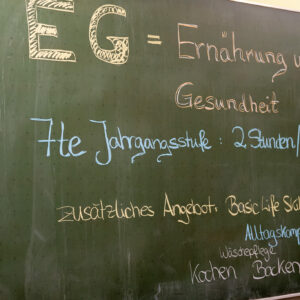 EG = Ernährung u
Gesundheit
7te Jahrgangsstufe : 2 Stunden/
zusätzliches Angebot: Basic Life Sk
Alltagskomp
Wäschepflege
Kochen Backen